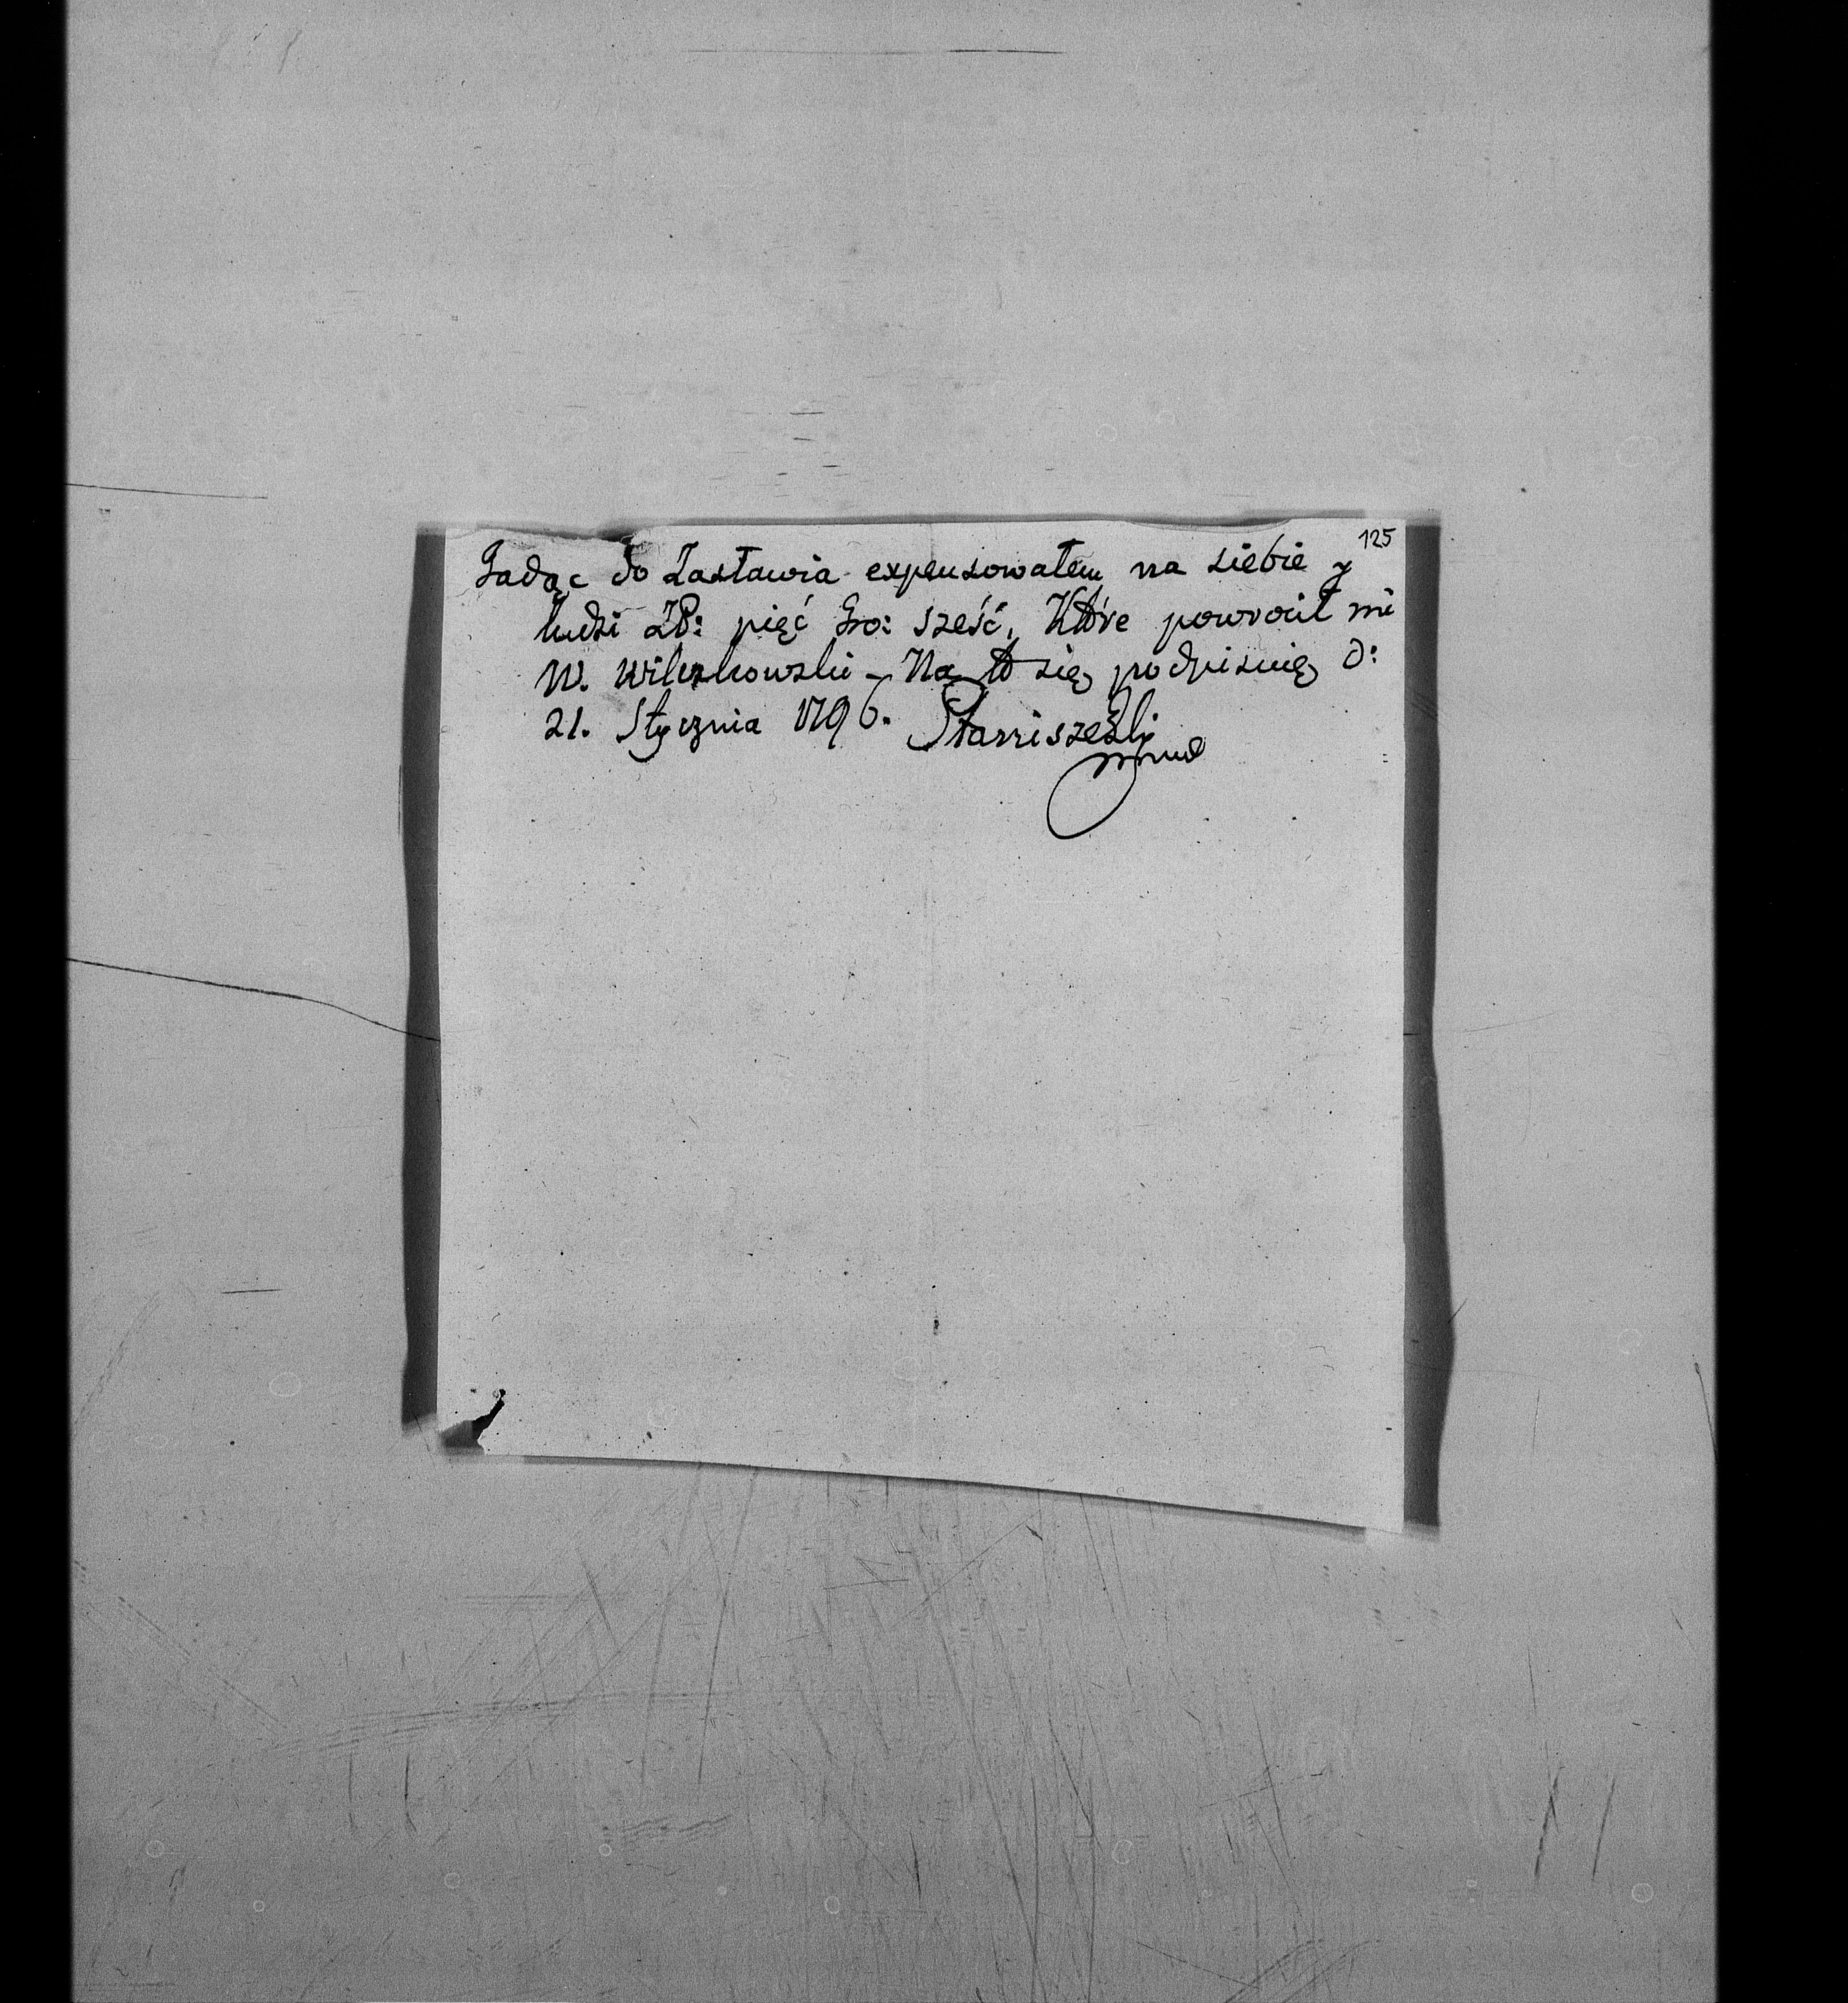 125
Jadąc do Zasławia expensowałem na siebie y
ludzi ZP: pięć Gro: sześć, Które powrócił mi
W. Wilczkowski – Na to się podpisuię d:
21. Stycznia 1796.